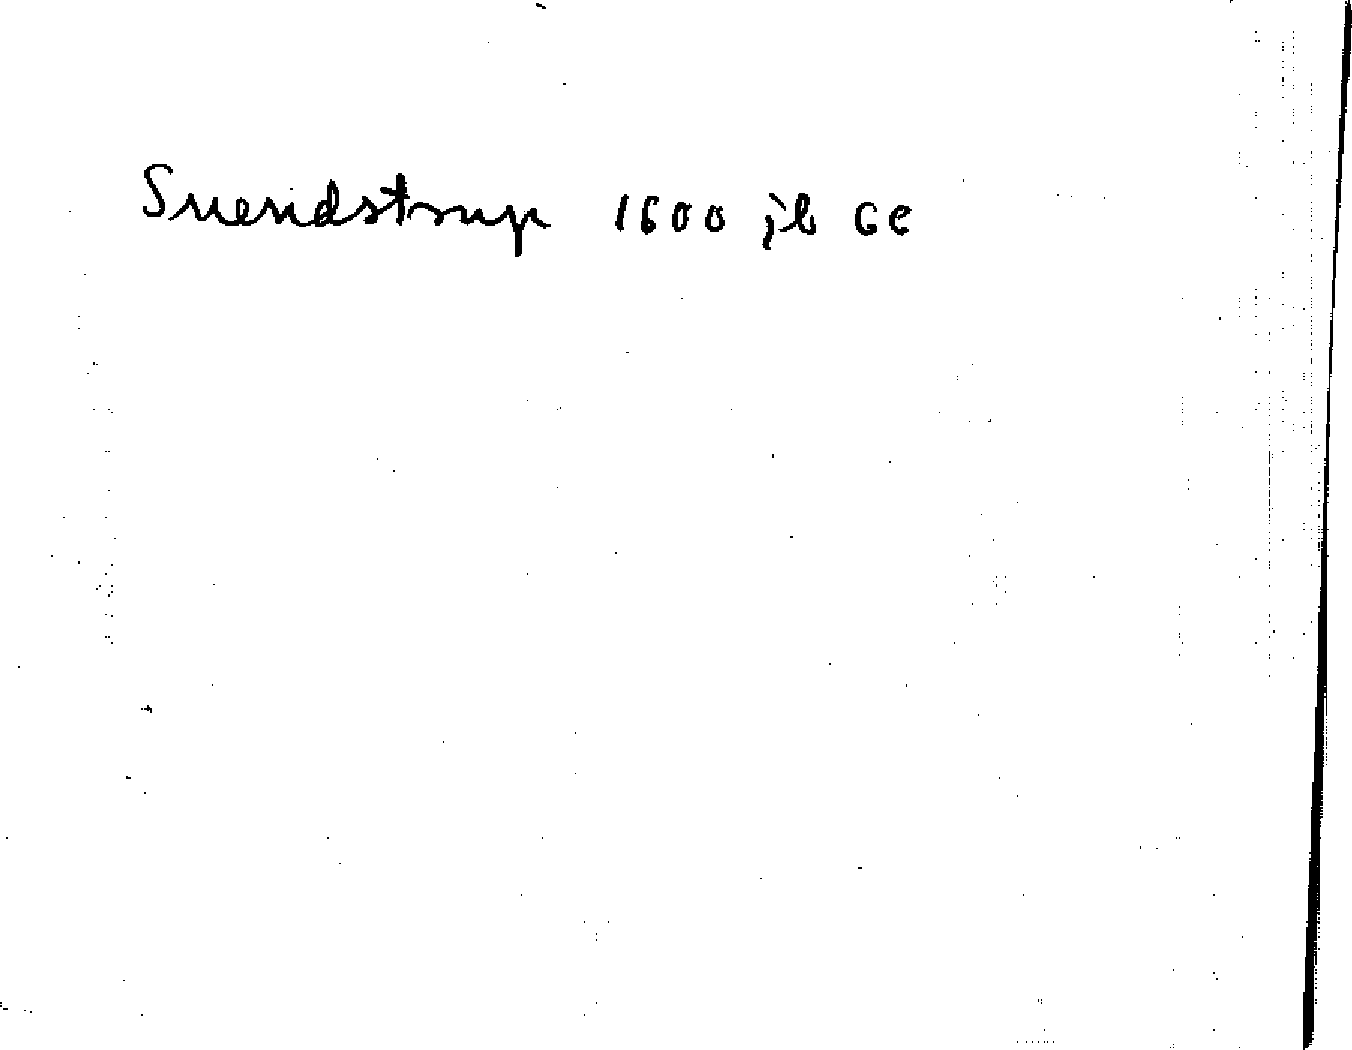 Svendstrup 1600 jb Ge